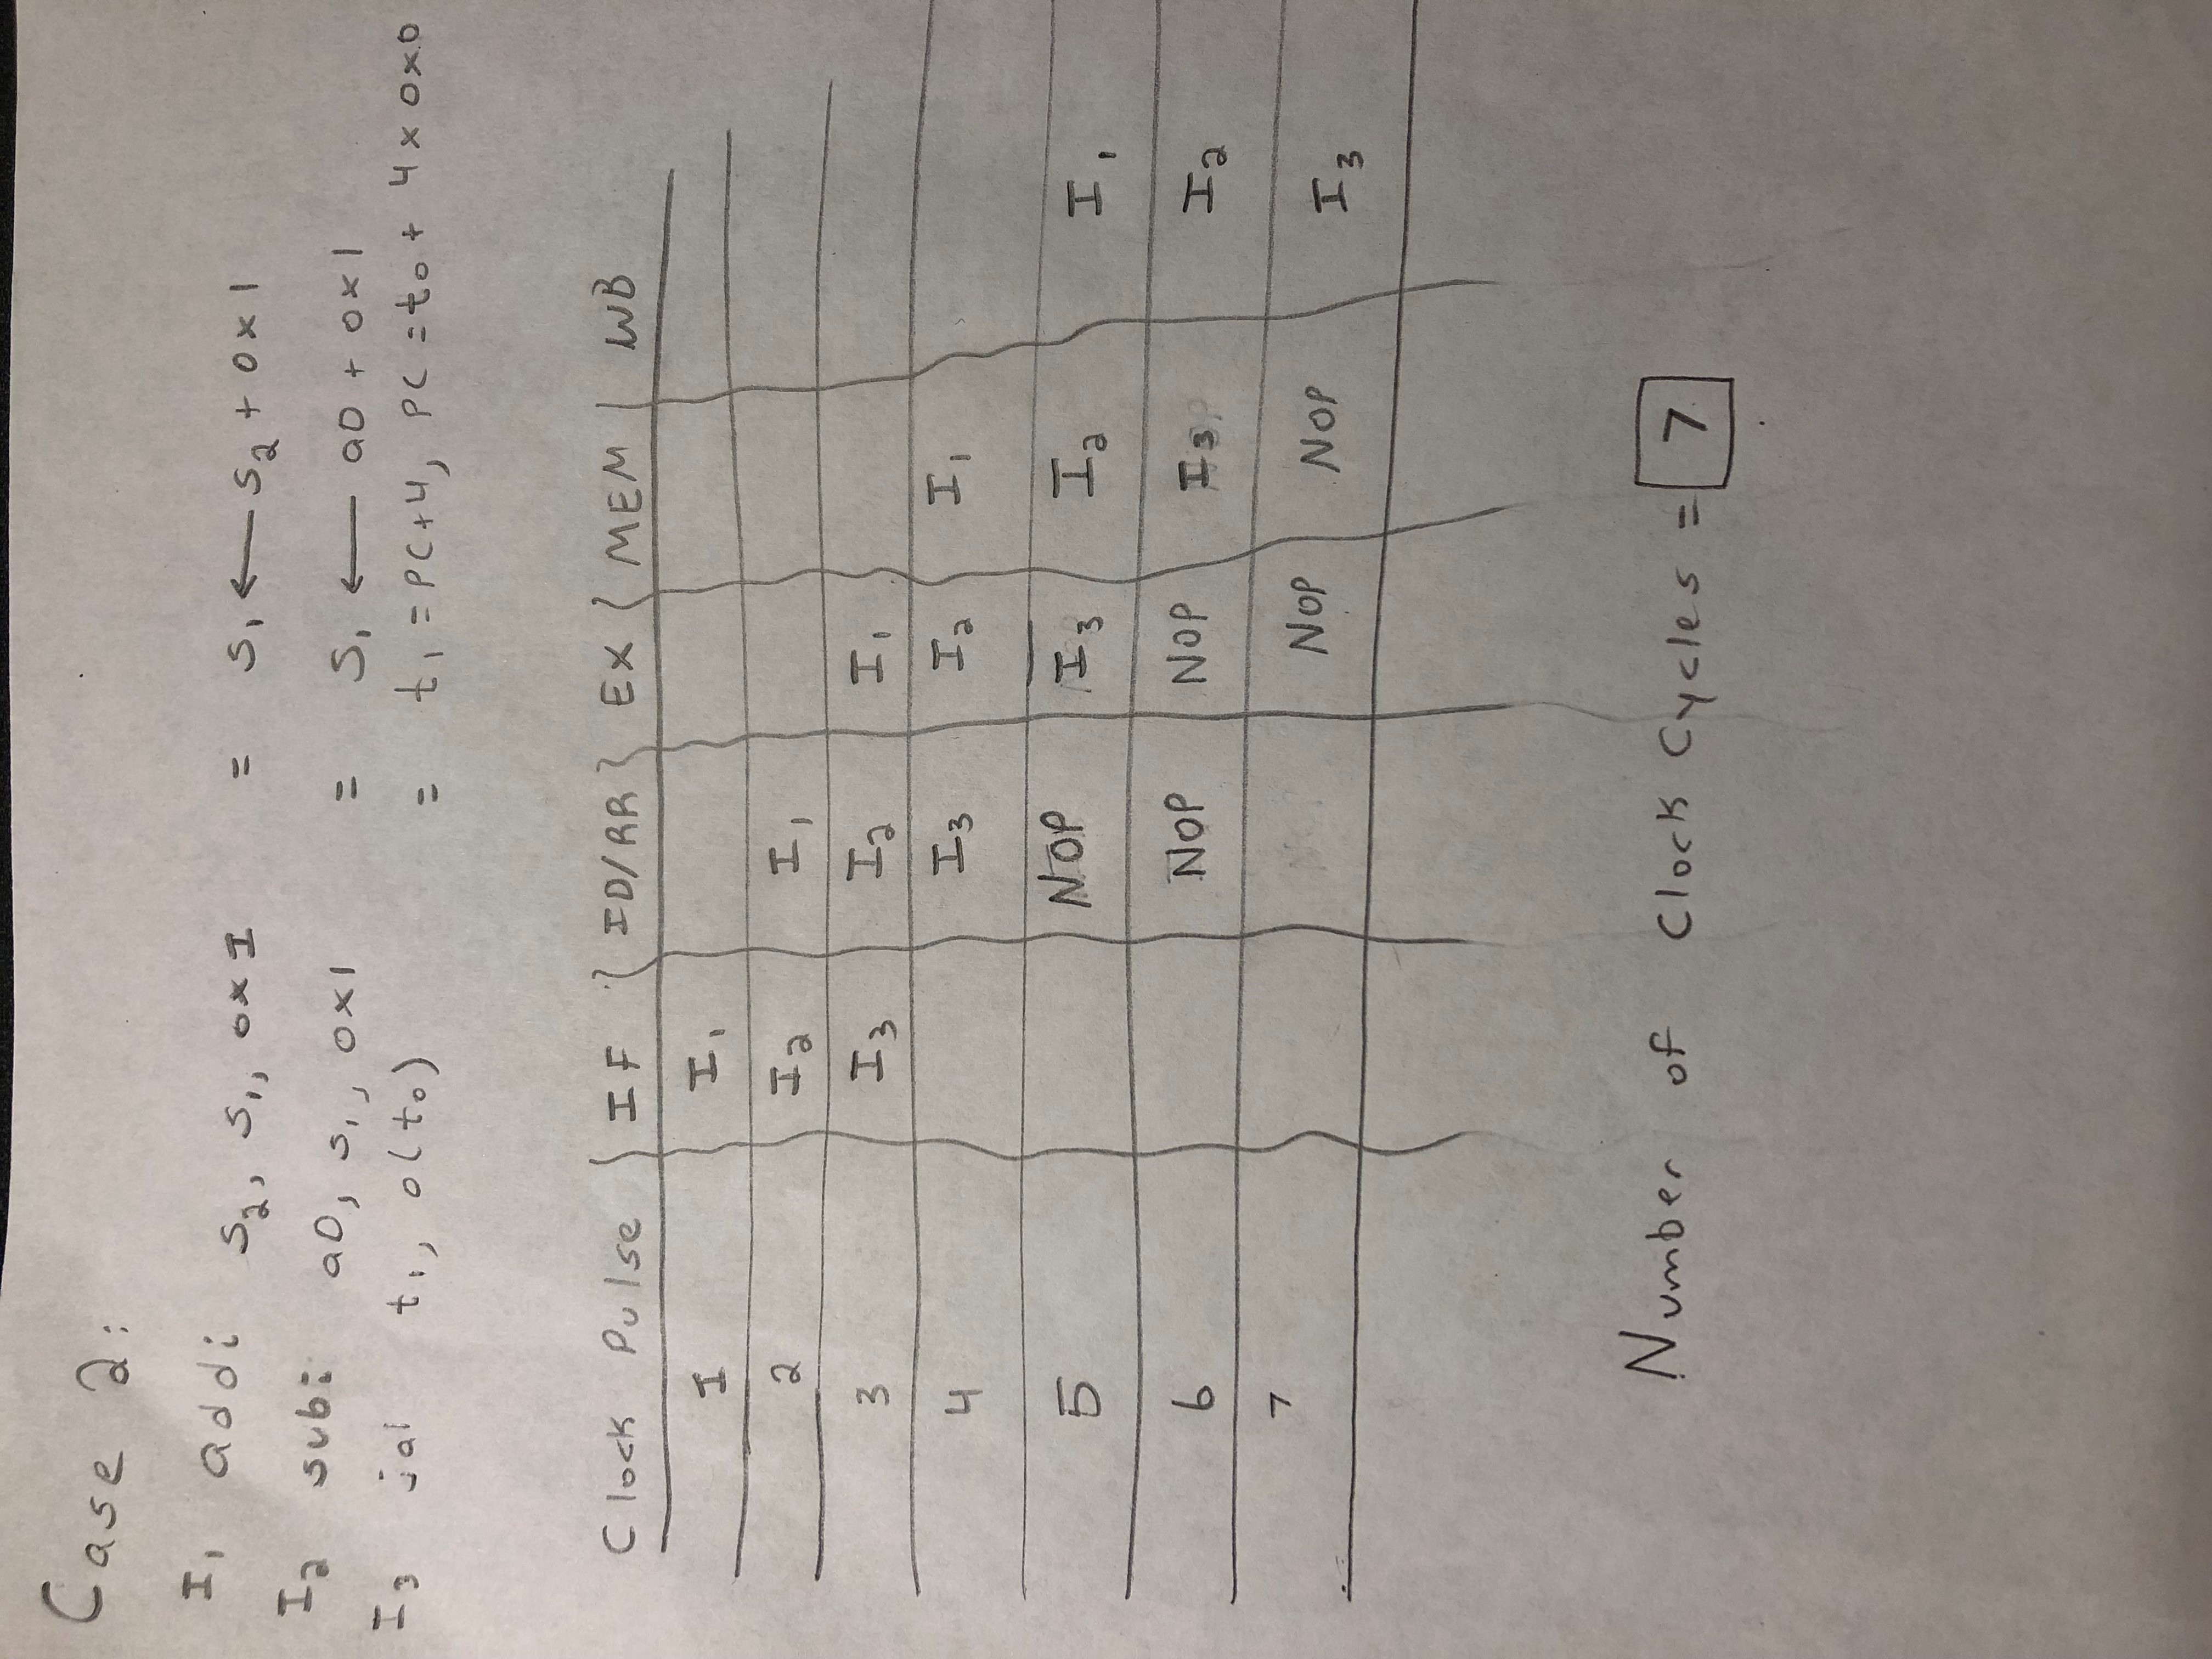 Case 2:
I1 addi s2, s1, 0x1 = s1 ← s2 + 0x1
I2 subi a0, s1, 0x1 = s1 ← a0 + 0x1
I3 jal t1, 0(t0) = t1 = PC+4, PC = t0 + 4x0x0
Clock Pulse IF ID/RR EX MEM WB
1 I1
2 I2 I1
3 I3 I2 I1
4 I3 I2 I1
5 NOP I3 I2 I1
6 NOP NOP I3 I2
7 NOP NOP I3
Number of Clock Cycles = 7